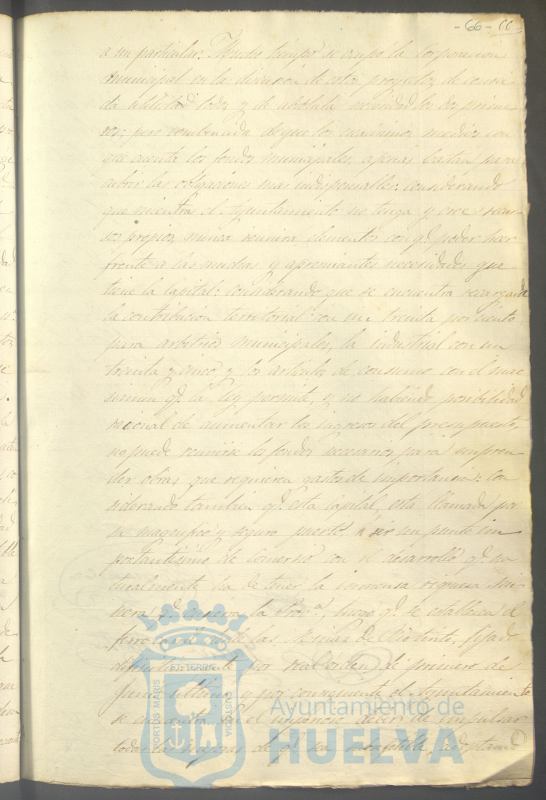 -66- 66
a un particular. Mucho tiempo se ocupó la Corporacion
municipal en la discusion de estos proyectos de conoci-
da utilidad todos y de absoluta necesidad los dos prime-
ros; pero convencida de que los escasísimos medios con
que cuenta los fondos municipales, apenas bastan para
cubrir las obligaciones mas indispensables: considerando
que mientras el Ayuntamiento no tenga y cree recur-
sos propios, nunca reunirá elementos con qe poder hacer
frente a las muchas y apremiantes necesidades que
tiene la capital: considerando que se encuentra recargada
la contribucion territorial con un treinta por ciento
para arbitrios municipales, la industrial con un
treinta y cinco y los artículos de consumo con el mac-
simun qe la ley permite, y no habiendo posibilidad
racional de aumentar los ingresos del presupuesto,
no puede reunirse los fondos necesarios para empren-
der obras que requieren gastos de importancia: con-
siderando tambien qe esta capital, esta llamada por
su magnifico y seguro puerto, a ser un punto im-
portantísimo de Comercio con el desarrollo qe na-
turalmente ha de tener la inmensa riqueza mi-
nera qe encierra la Prova, luego qe se establezca el
ferro-carril de las minas de Riotinto, fijado
definitivamente por real orden de primero de
Junio último y por consiguiente el Ayuntamiento
se encuentra en el imperioso deber de impulsar
todas las mejoras de qe es susceptible, adoptando
PORTUS MARIS ET TERRAE CUSTODIA
Ayuntamiento de
HUELVA